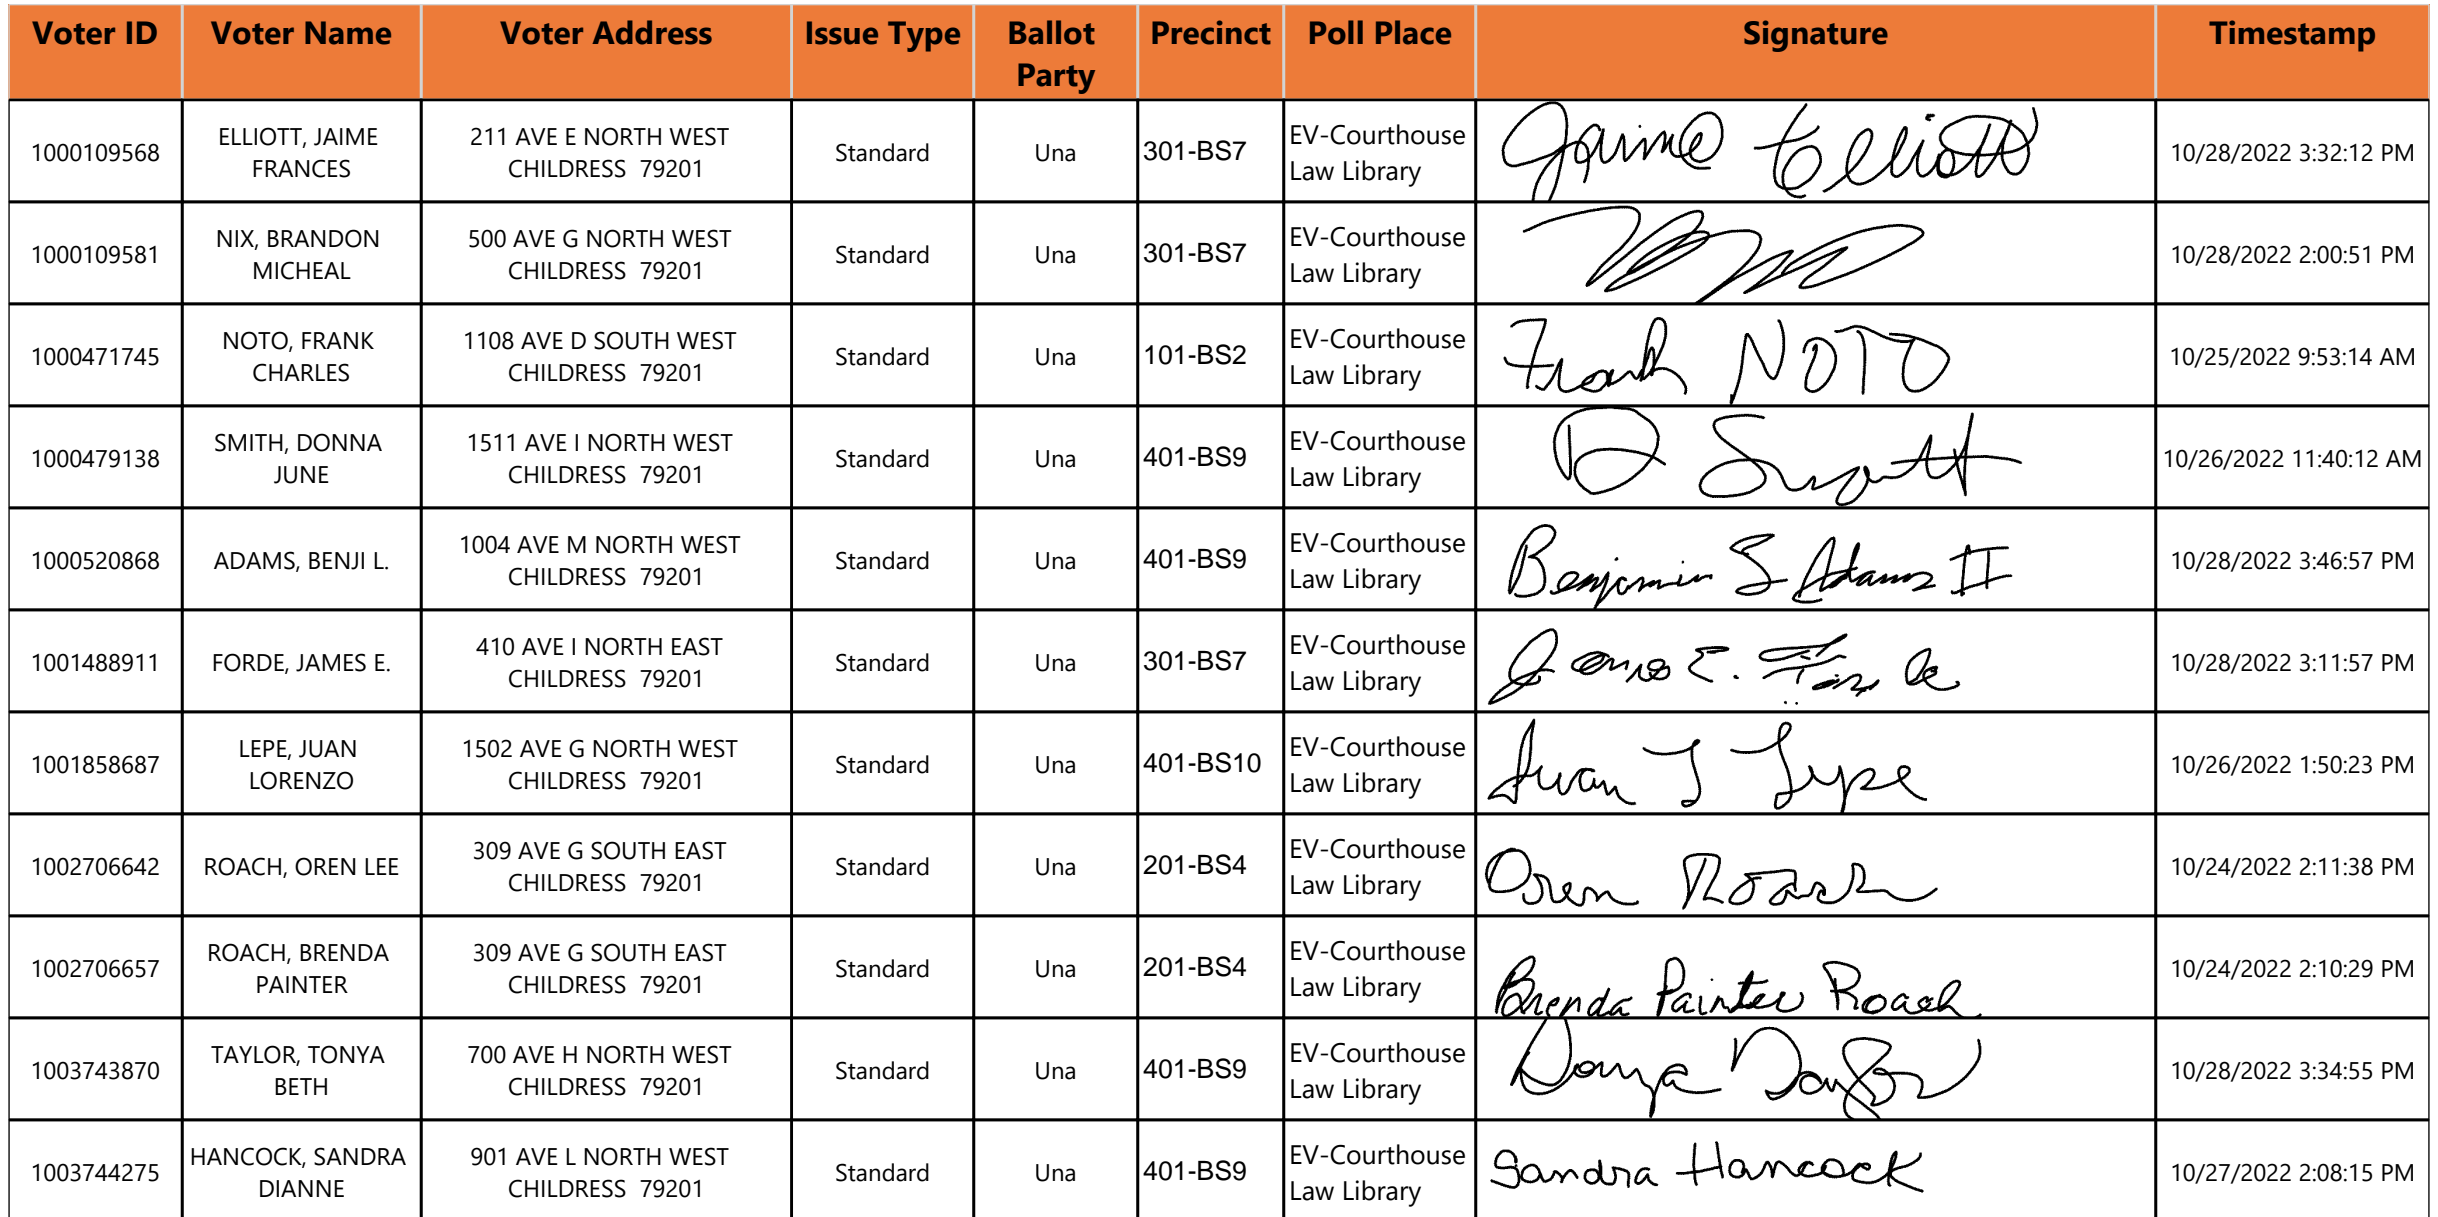 Voter ID Voter Name Voter Address Issue Type Ballot Party Precinct Poll Place Signature Timestamp
1000109568 ELLIOTT, JAIME FRANCES 211 AVE E NORTH WEST CHILDRESS 79201 Standard Una 301-BS7 EV-Courthouse Law Library Jaime Elliott 10/28/2022 3:32:12 PM
1000109581 NIX, BRANDON MICHEAL 500 AVE G NORTH WEST CHILDRESS 79201 Standard Una 301-BS7 EV-Courthouse Law Library 10/28/2022 2:00:51 PM
1000471745 NOTO, FRANK CHARLES 1108 AVE D SOUTH WEST CHILDRESS 79201 Standard Una 101-BS2 EV-Courthouse Law Library Frank NOTO 10/25/2022 9:53:14 AM
1000479138 SMITH, DONNA JUNE 1511 AVE I NORTH WEST CHILDRESS 79201 Standard Una 401-BS9 EV-Courthouse Law Library D 10/26/2022 11:40:12 AM
1000520868 ADAMS, BENJI L. 1004 AVE M NORTH WEST CHILDRESS 79201 Standard Una 401-BS9 EV-Courthouse Law Library Benjamin L Adams II 10/28/2022 3:46:57 PM
1001488911 FORDE, JAMES E. 410 AVE I NORTH EAST CHILDRESS 79201 Standard Una 301-BS7 EV-Courthouse Law Library James E. Forde 10/28/2022 3:11:57 PM
1001858687 LEPE, JUAN LORENZO 1502 AVE G NORTH WEST CHILDRESS 79201 Standard Una 401-BS10 EV-Courthouse Law Library Juan L Lepe 10/26/2022 1:50:23 PM
1002706642 ROACH, OREN LEE 309 AVE G SOUTH EAST CHILDRESS 79201 Standard Una 201-BS4 EV-Courthouse Law Library Oren Roach 10/24/2022 2:11:38 PM
1002706657 ROACH, BRENDA PAINTER 309 AVE G SOUTH EAST CHILDRESS 79201 Standard Una 201-BS4 EV-Courthouse Law Library Brenda Painter Roach 10/24/2022 2:10:29 PM
1003743870 TAYLOR, TONYA BETH 700 AVE H NORTH WEST CHILDRESS 79201 Standard Una 401-BS9 EV-Courthouse Law Library Tonya Taylor 10/28/2022 3:34:55 PM
1003744275 HANCOCK, SANDRA DIANNE 901 AVE L NORTH WEST CHILDRESS 79201 Standard Una 401-BS9 EV-Courthouse Law Library Sandra Hancock 10/27/2022 2:08:15 PM